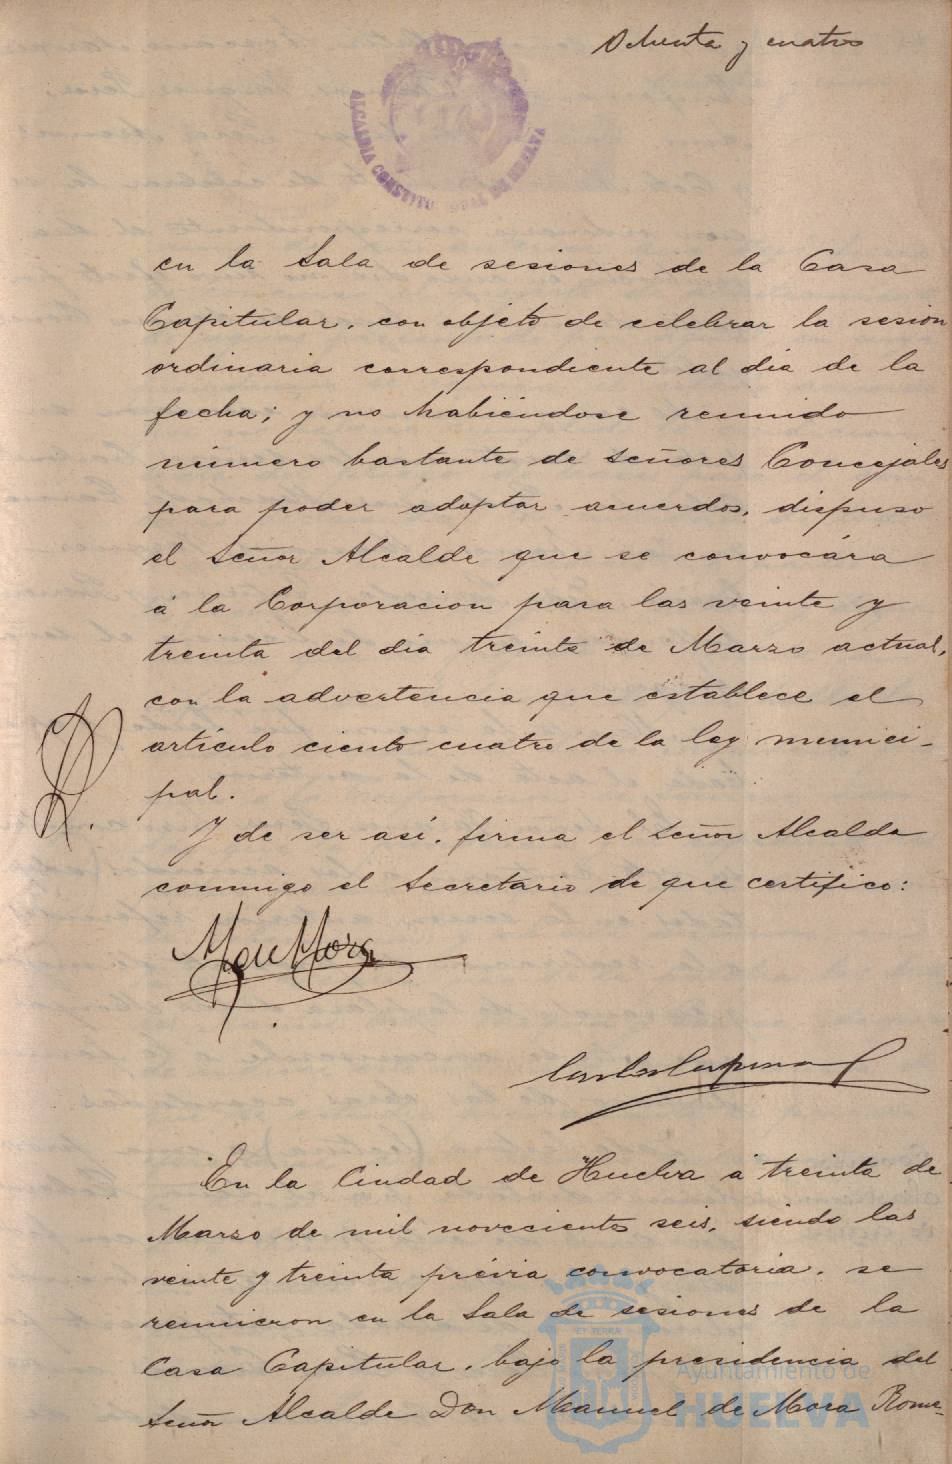 Ochenta y cuatro
ALCALDIA CONSTITU NAL DE HUELVA
en la Sala de sesiones de la Casa
Capitular, con objeto de celebrar la sesion
ordinaria correspondiente al dia de la
fecha; y no habiéndose reunido
número bastante de señores Concejales
para poder adoptar acuerdos, dispuso
el Señor Alcalde que se convocára
á la Corporacion para las veinte y
treinta del dia treinta de Marzo actual,
con la advertencia que establece el
artículo ciento cuatro de la ley munici-
pal.
Y de ser así, firma el Señor Alcalde
conmigo el Secretario de que certifico:
M de Mora
En la Ciudad de Huelva á treinta de
Marzo de mil novecientos seis, siendo las
veinte y treinta prévia convocatoria, se
reunieron en la Sala de sesiones de la
Casa Capitular, bajo la presidencia del
Señor Alcalde Don Manuel de Mora Rome-
Ayuntamiento de
HUELVA